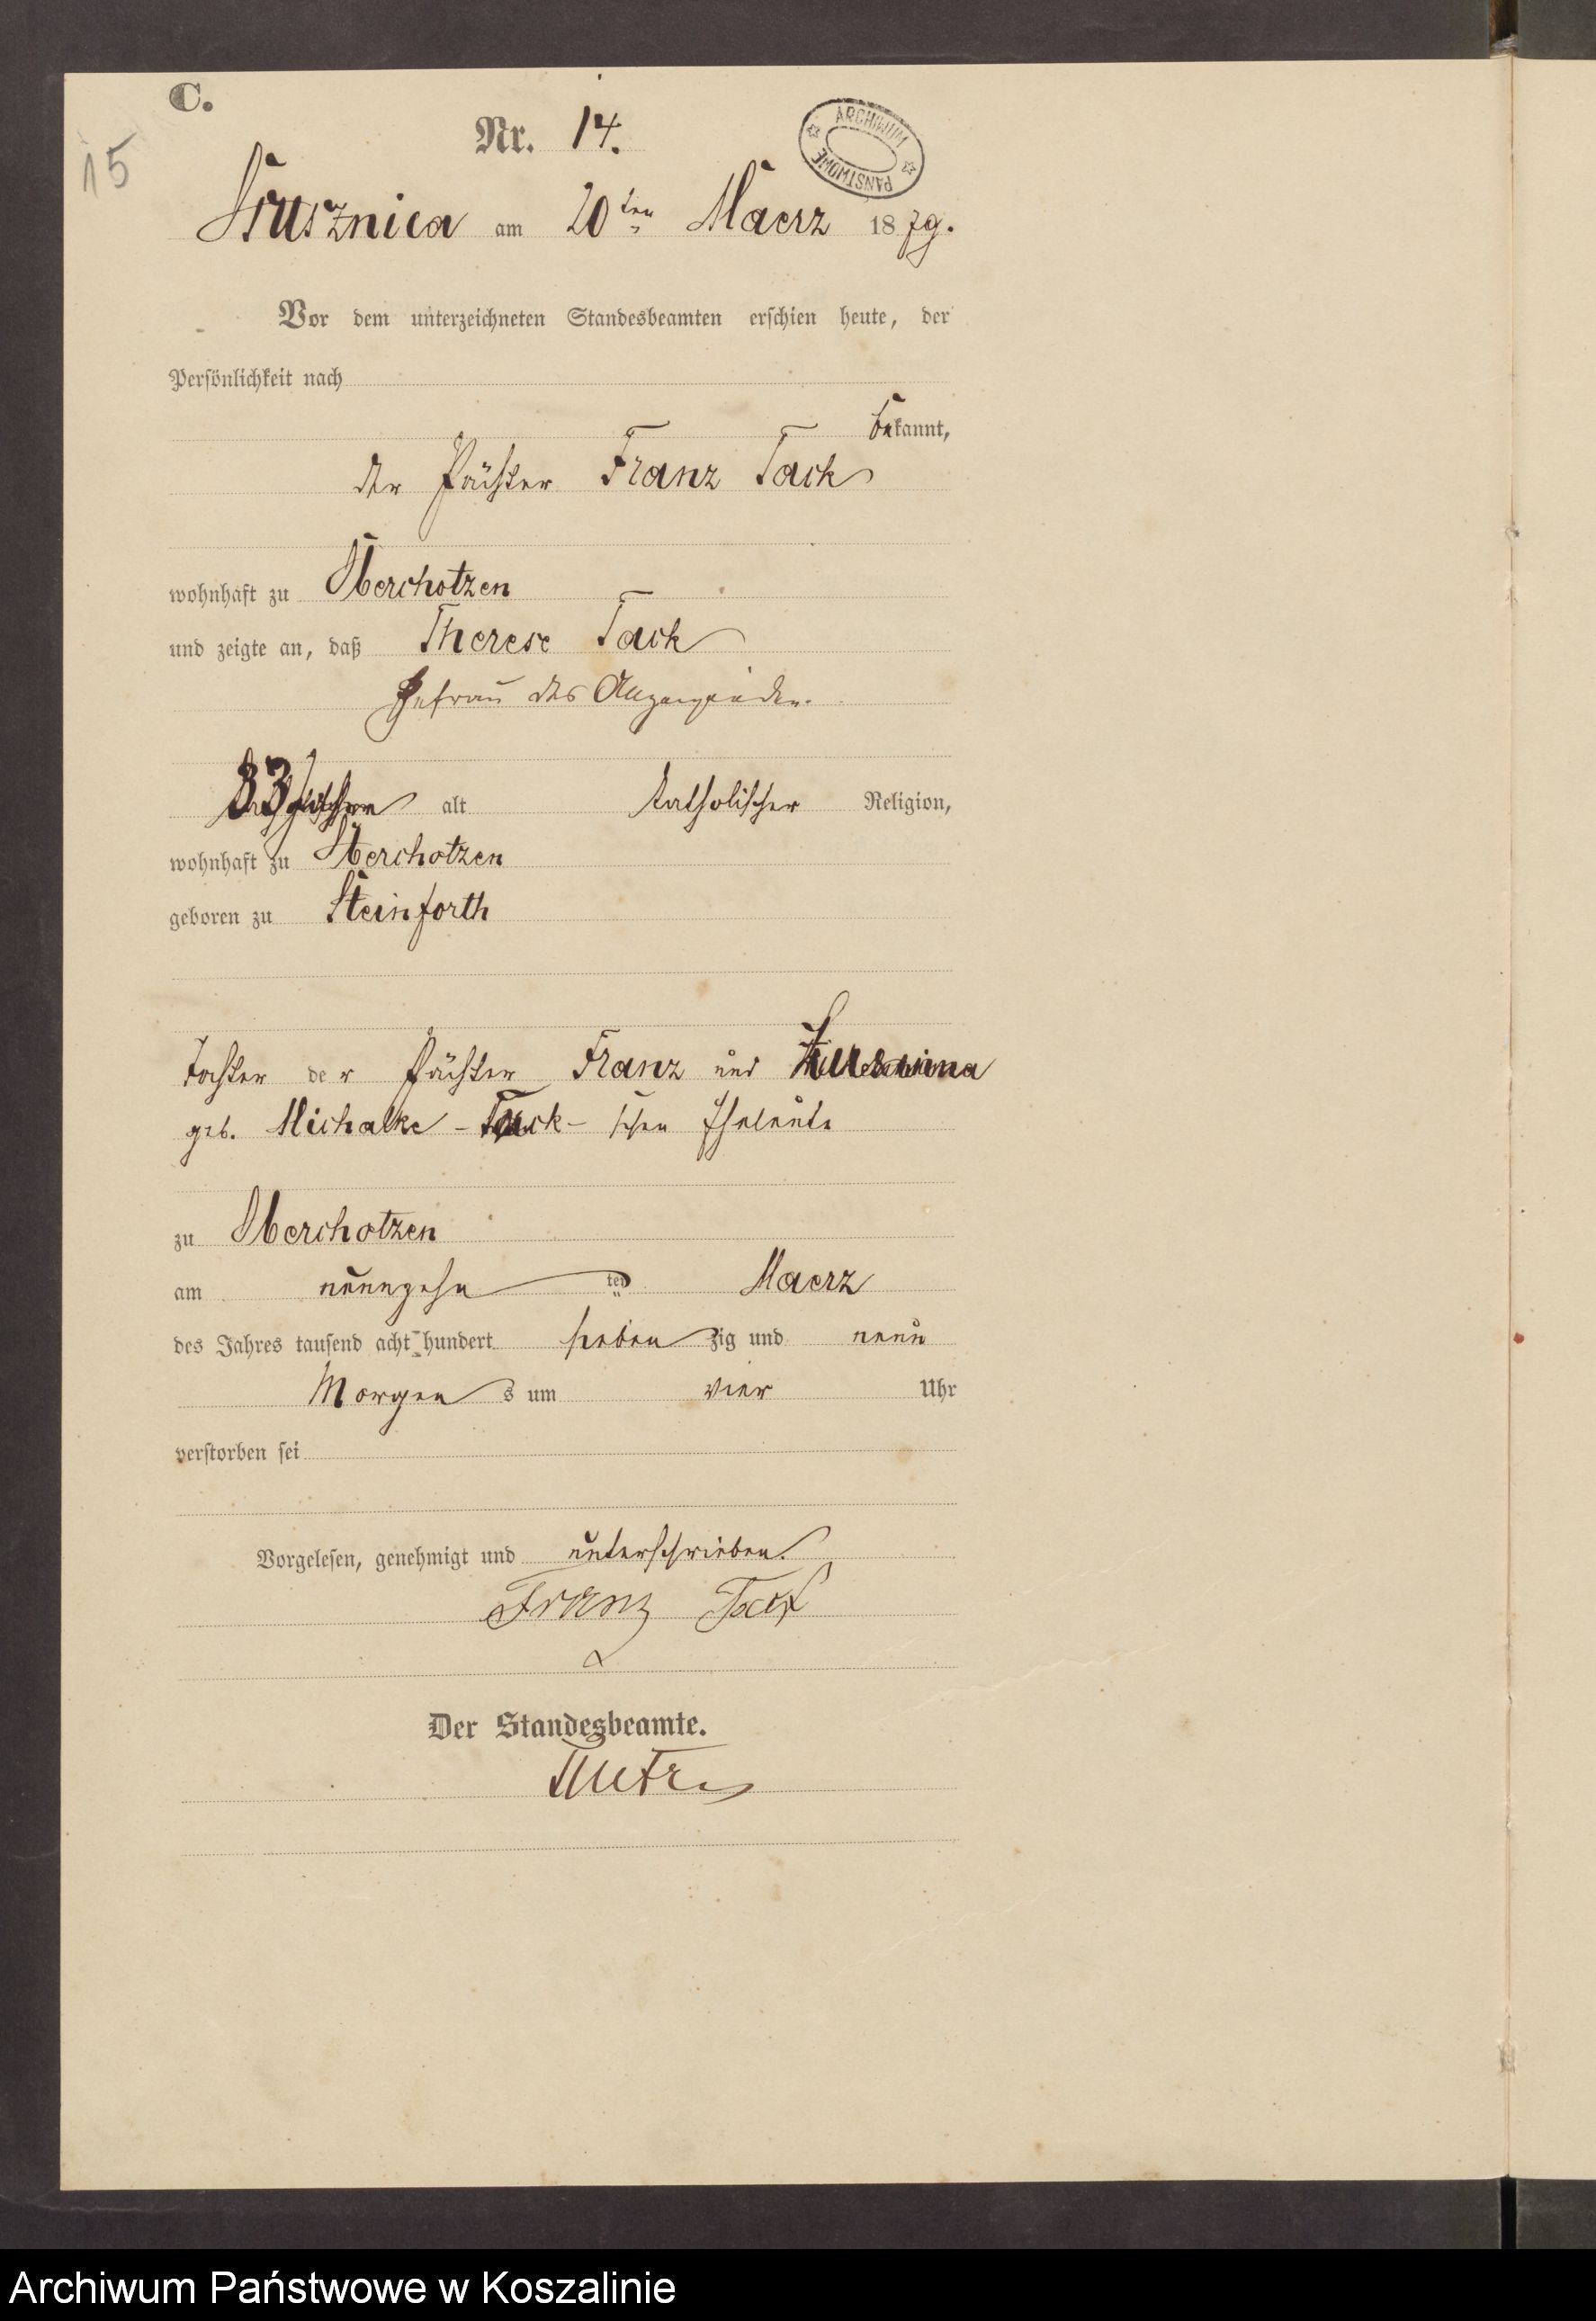 C.
15
Nr. 14.
ARCHIWUM PAŃSTWOWE
Prusznica am 20ten Maerz 1879.
Vor dem unterzeichneten Standesbeamten erschien heute, der
Persönlichkeit nach
bekannt,
der Pächter Franz Tack
wohnhaft zu Oberchotzen
und zeigte an, daß Therese Tack
Ehefrau des Anzeigenden.
33 alt katholischer Religion,
wohnhaft zu Oberchotzen
geboren zu Steinforth
Tochter der Pächter Franz und
geb. Michalke - Tack - schen Eheleute
zu Oberchotzen
am neunzehnten Maerz
des Jahres tausend acht hundert siebenzig und neun
Morgens um vier Uhr
verstorben sei
Vorgelesen, genehmigt und unterschrieben.
Franz Tack
Der Standesbeamte.
Archiwum Państwowe w Koszalinie